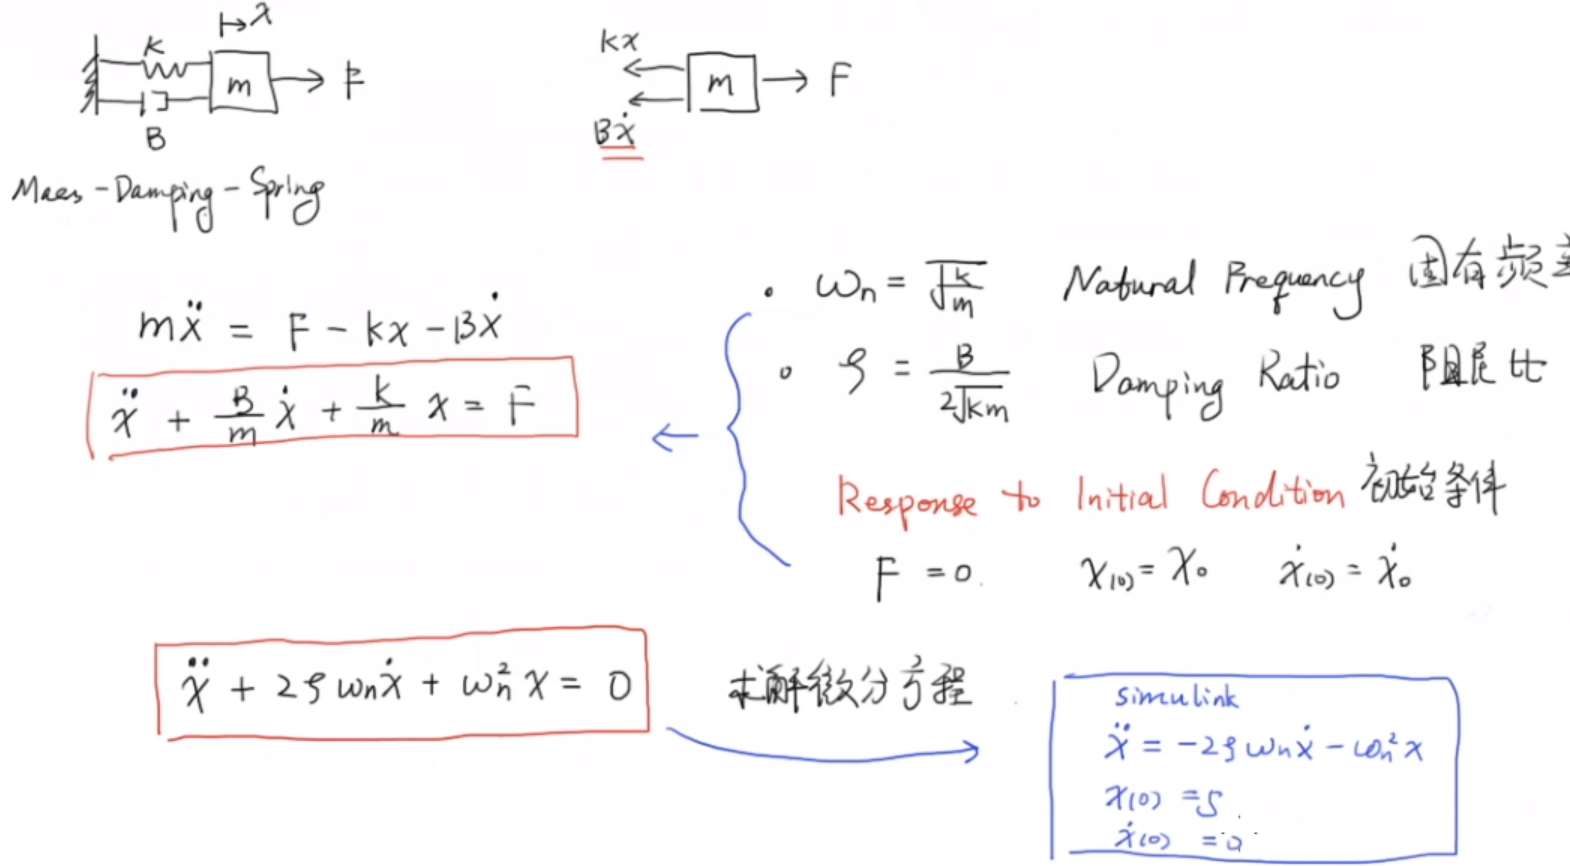 ↦x
K
m → F
B
Mass - Damping - Spring
kx
m → F
Bẋ
mẍ = F - kx - Bẋ
ẍ + B/m ẋ + k/m x = F
• ωn = √(k/m) Natural Frequency 固有频率
• ζ = B/(2√km) Damping Ratio 阻尼比
←
Response to Initial Condition 初始条件
F = 0. x(0) = x₀ ẋ(0) = ẋ₀
ẍ + 2ζωnẋ + ωn²x = 0 求解微分方程
simulink
ẍ = -2ζωnẋ - ωn²x
x(0) = 5
ẋ(0) = 0